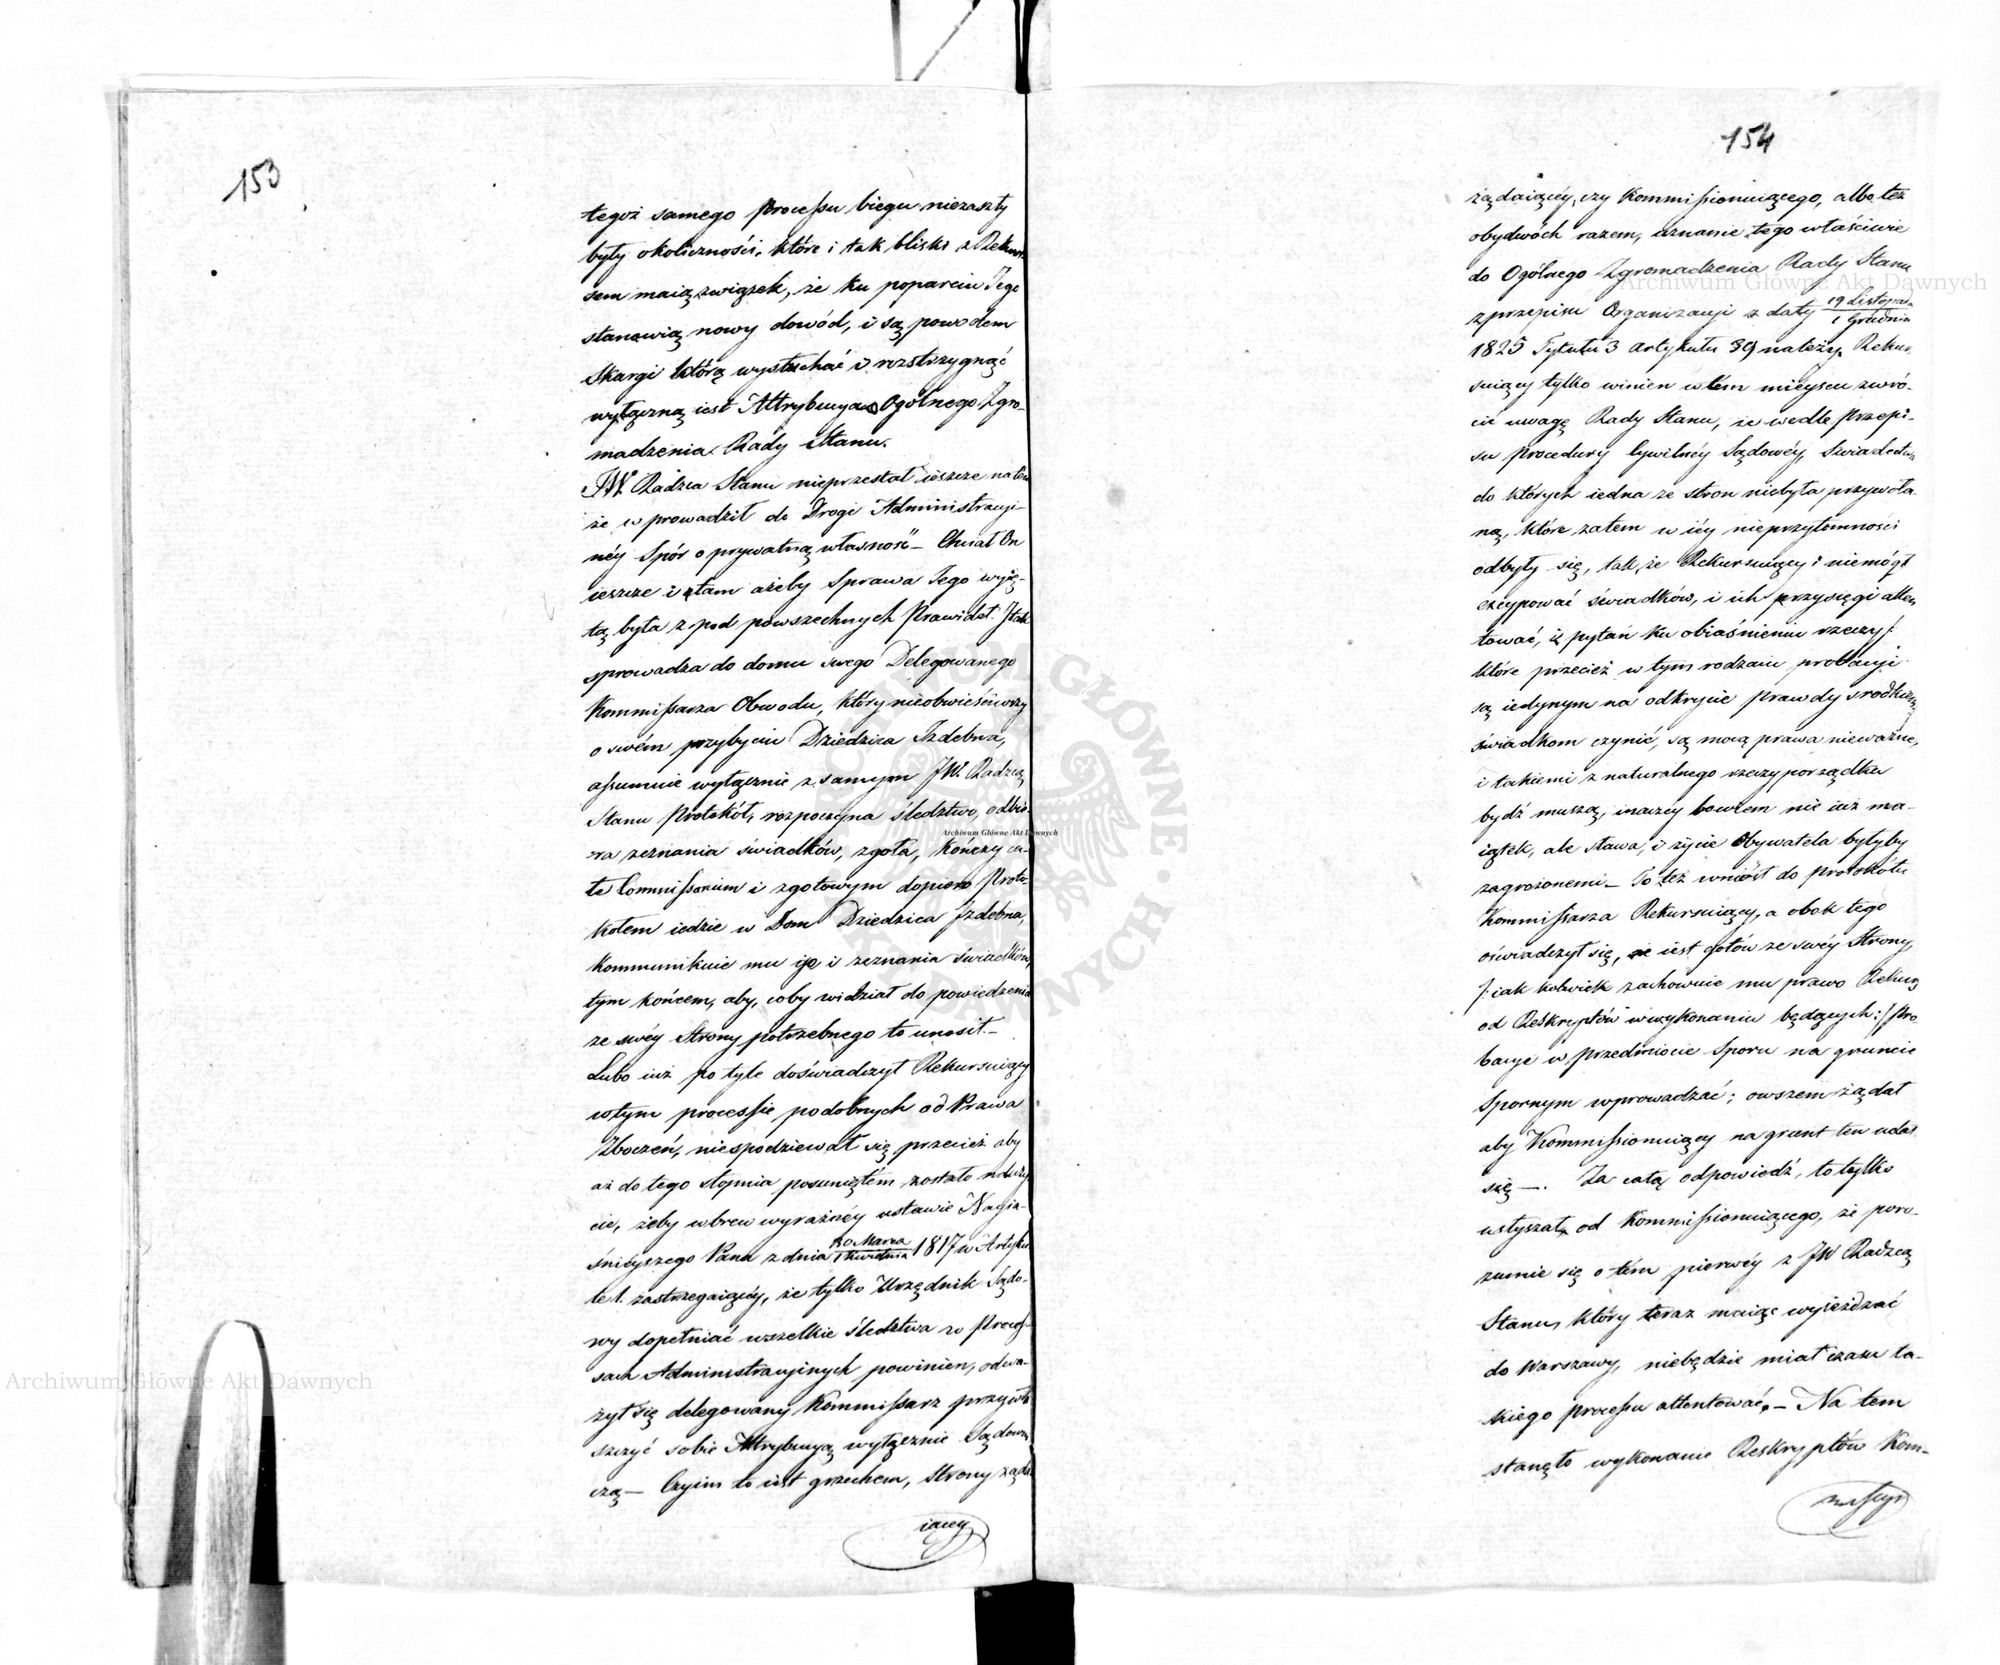 153
tegoż samego Processu biegu niezaszły
były okoliczności, które i tak bliski z Rekur-
sem maią związek, że ku poparciu Jego
stanowią nowy dowód, i są powodem
Skargi którą wysłuchać i rozstrzygnąć
wyłączną iest Attrybucya Ogólnego Zgro-
madzenia Rady Stanu.
JW. Radzca Stanu nieprzestał ieszcze na tém
że wprowadził do Drogi Administracyi-
néy Spór o prywatną własność – Chciał On
ieszcze i tam ażeby Sprawa Jego wyię-
tą była z pod powszechnych Prawideł. Jtak
sprowadza do domu swego Delegowanego
Kommissarza Obwodu, który nieobwieściwszy
o swém przybyciu Dziedzica Izdebna,
assumuie wyłącznie z samym JW. Radzcą
Stanu Protokół, rozpoczyna śledztwo, odbie-
ra zeznania świadków, zgoła, kończy ca-
łe Commissorium i zgotowym dopiero Proto-
kołem iedzie w Dom Dziedzica Jzdebna,
kommunikuie mu go i zeznania świadków,
tym końcem, aby, coby widział do powiedzenia
ze swéy Strony potrzebnego to wnosił. –
Lubo iuż po tyle doświadczył Rekursuiący
wtym processie podobnych od Prawa
Zboczeń, niespodziewał się przecież aby
aż do tego stopnia posuniętem zostało naduży
cie, żeby wbrew wyraźnéy ustawie Nayia-
śnieyszego Pana z dnia 20 Marca / 1 Kwietnia 1817 w Artyku
le 1. zastrzegaiącéy, że tylko Urzędnik Sądo-
wy dopełniać wszelkie śledztwa w Proces-
sach Administracyinych powinien, odwa-
żył się delegowany Kommissarz przywła
szczyć sobie Attrybucyą wyłącznie Sądowni
czą – Czyim to iest grzechem, Strony żąda
iącey
154
żądaiącéy, czy Kommissionuiącego, albo też
obydwóch razem, uznanie tego właściwie
do Ogólnego Zgromadzenia Rady Stanu
z przepisu Organizacyi z daty 19 Listopada / 1 Grudnia
1825 Tytułu 3 Artykułu 39 należy. Rekur-
suiący tylko winien w tém mieyscu zwró-
cić uwagę Rady Stanu, że wedle przepi-
su Procedury Cywilnéy Sądowéy, Świadectwa
do których iedna ze stron niebyła przywoła
ną, które zatem w iéy nieprzytomności
odbyły się, tak, że Rekursuiący i niemógł
excypować świadków, i ich przysięgi atten
tować, i pytań ku obiaśnieniu rzeczy /:
które przecież w tym rodzaiu probacyi
są iedynym na odkrycie prawdy srodkiem :/
świadkom czynić, są mocą prawa nieważne,
i takiemi z naturalnego rzeczy porządku
bydź muszą, inaczey bowiem nie iuż ma-
iątek, ale sława, i życie Obywatela byłyby
zagrożonemi – To też wniósł do Protokółu
Kommissarza Rekursuiący, a obok tego
oświadczył się, że iest gotów ze swéy Strony,
/: iak kolwiek zachowuie mu prawo Rekurs
od Reskryptów w wykonaniu będących :/ Pro
bacye w przedmiocie Sporu na gruncie
Spornym wprowadzać; owszem żądał
aby Kommissionuiący na grunt ten udał
się –. Za całą odpowiedź, to tylko
usłyszał od Kommissionuiącego, że poro-
zumie się o tém pierwéy z JW Radzcą
Stanu, który teraz maiąc wyieżdżać
do Warszawy, niebędzie miał czasu ta-
kiego processu attentować. – Na tem
stanęło wykonanie Reskryptów Kom-
missyi